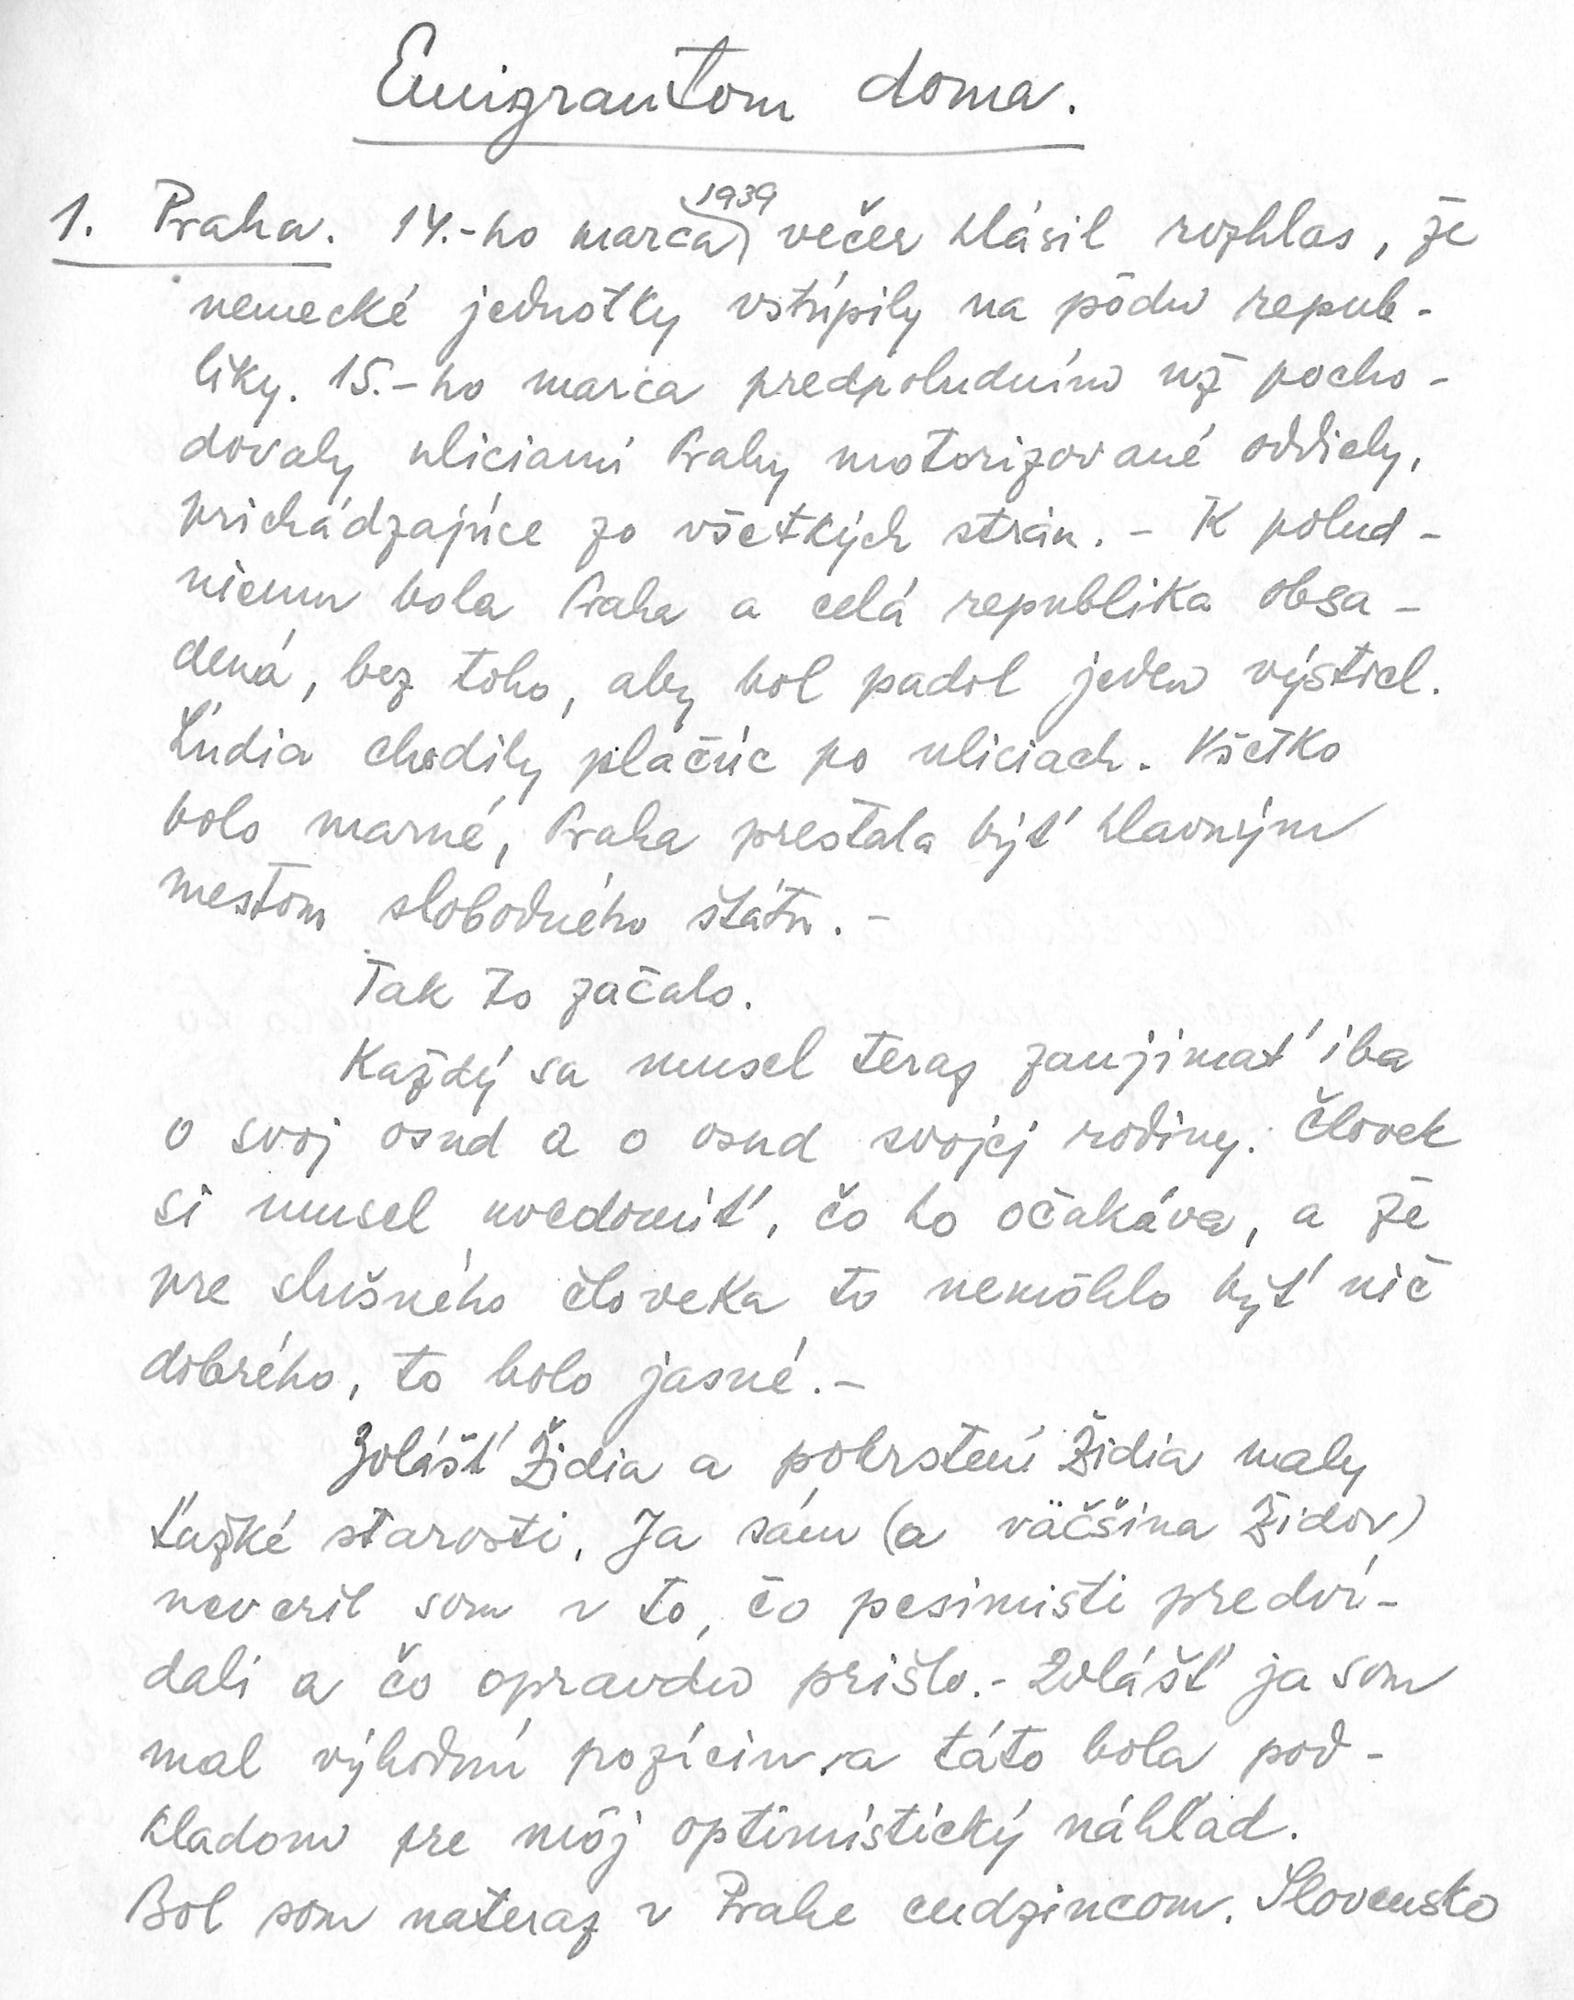 Emigrantom doma.
1. Praha. 14.-ho marca 1939 večer hlásil rozhlas, že
nemecké jednotky vstúpily na pôdu repub-
liky. 15.-ho marca predpoludním už pocho-
dovaly uliciami Prahy motorizované oddiely,
prichádzajúce zo všetkých strán. - K polud-
niemu bola Praha a celá republika obsa-
dená, bez toho, aby bol padol jeden výstrel.
Ľudia chodily plačúc po uliciach. Všetko
bolo marné, Praha prestala byť hlavným
mestom slobodného štátu. -
Tak to začalo.
Každý sa musel teraz zaujimať iba
o svoj osud a o osud svojej rodiny. Človek
si musel uvedomiť, čo ho očakáva, a že
pre slušného človeka to nemôhlo byť nič
dobrého, to bolo jasné. -
Zvlášť Židia a pokrstení Židia maly
ťažké starosti. Ja sám (a väčšina Židov)
neveril som v to, čo pesimisti predví-
dali a čo opravdu prišlo. - Zvlášť ja som
mal výhodnú pozíciu, a táto bola pod-
kladom pre môj optimistický náhľad.
Bol som nateraz v Prahe cudzincom. Slovensko